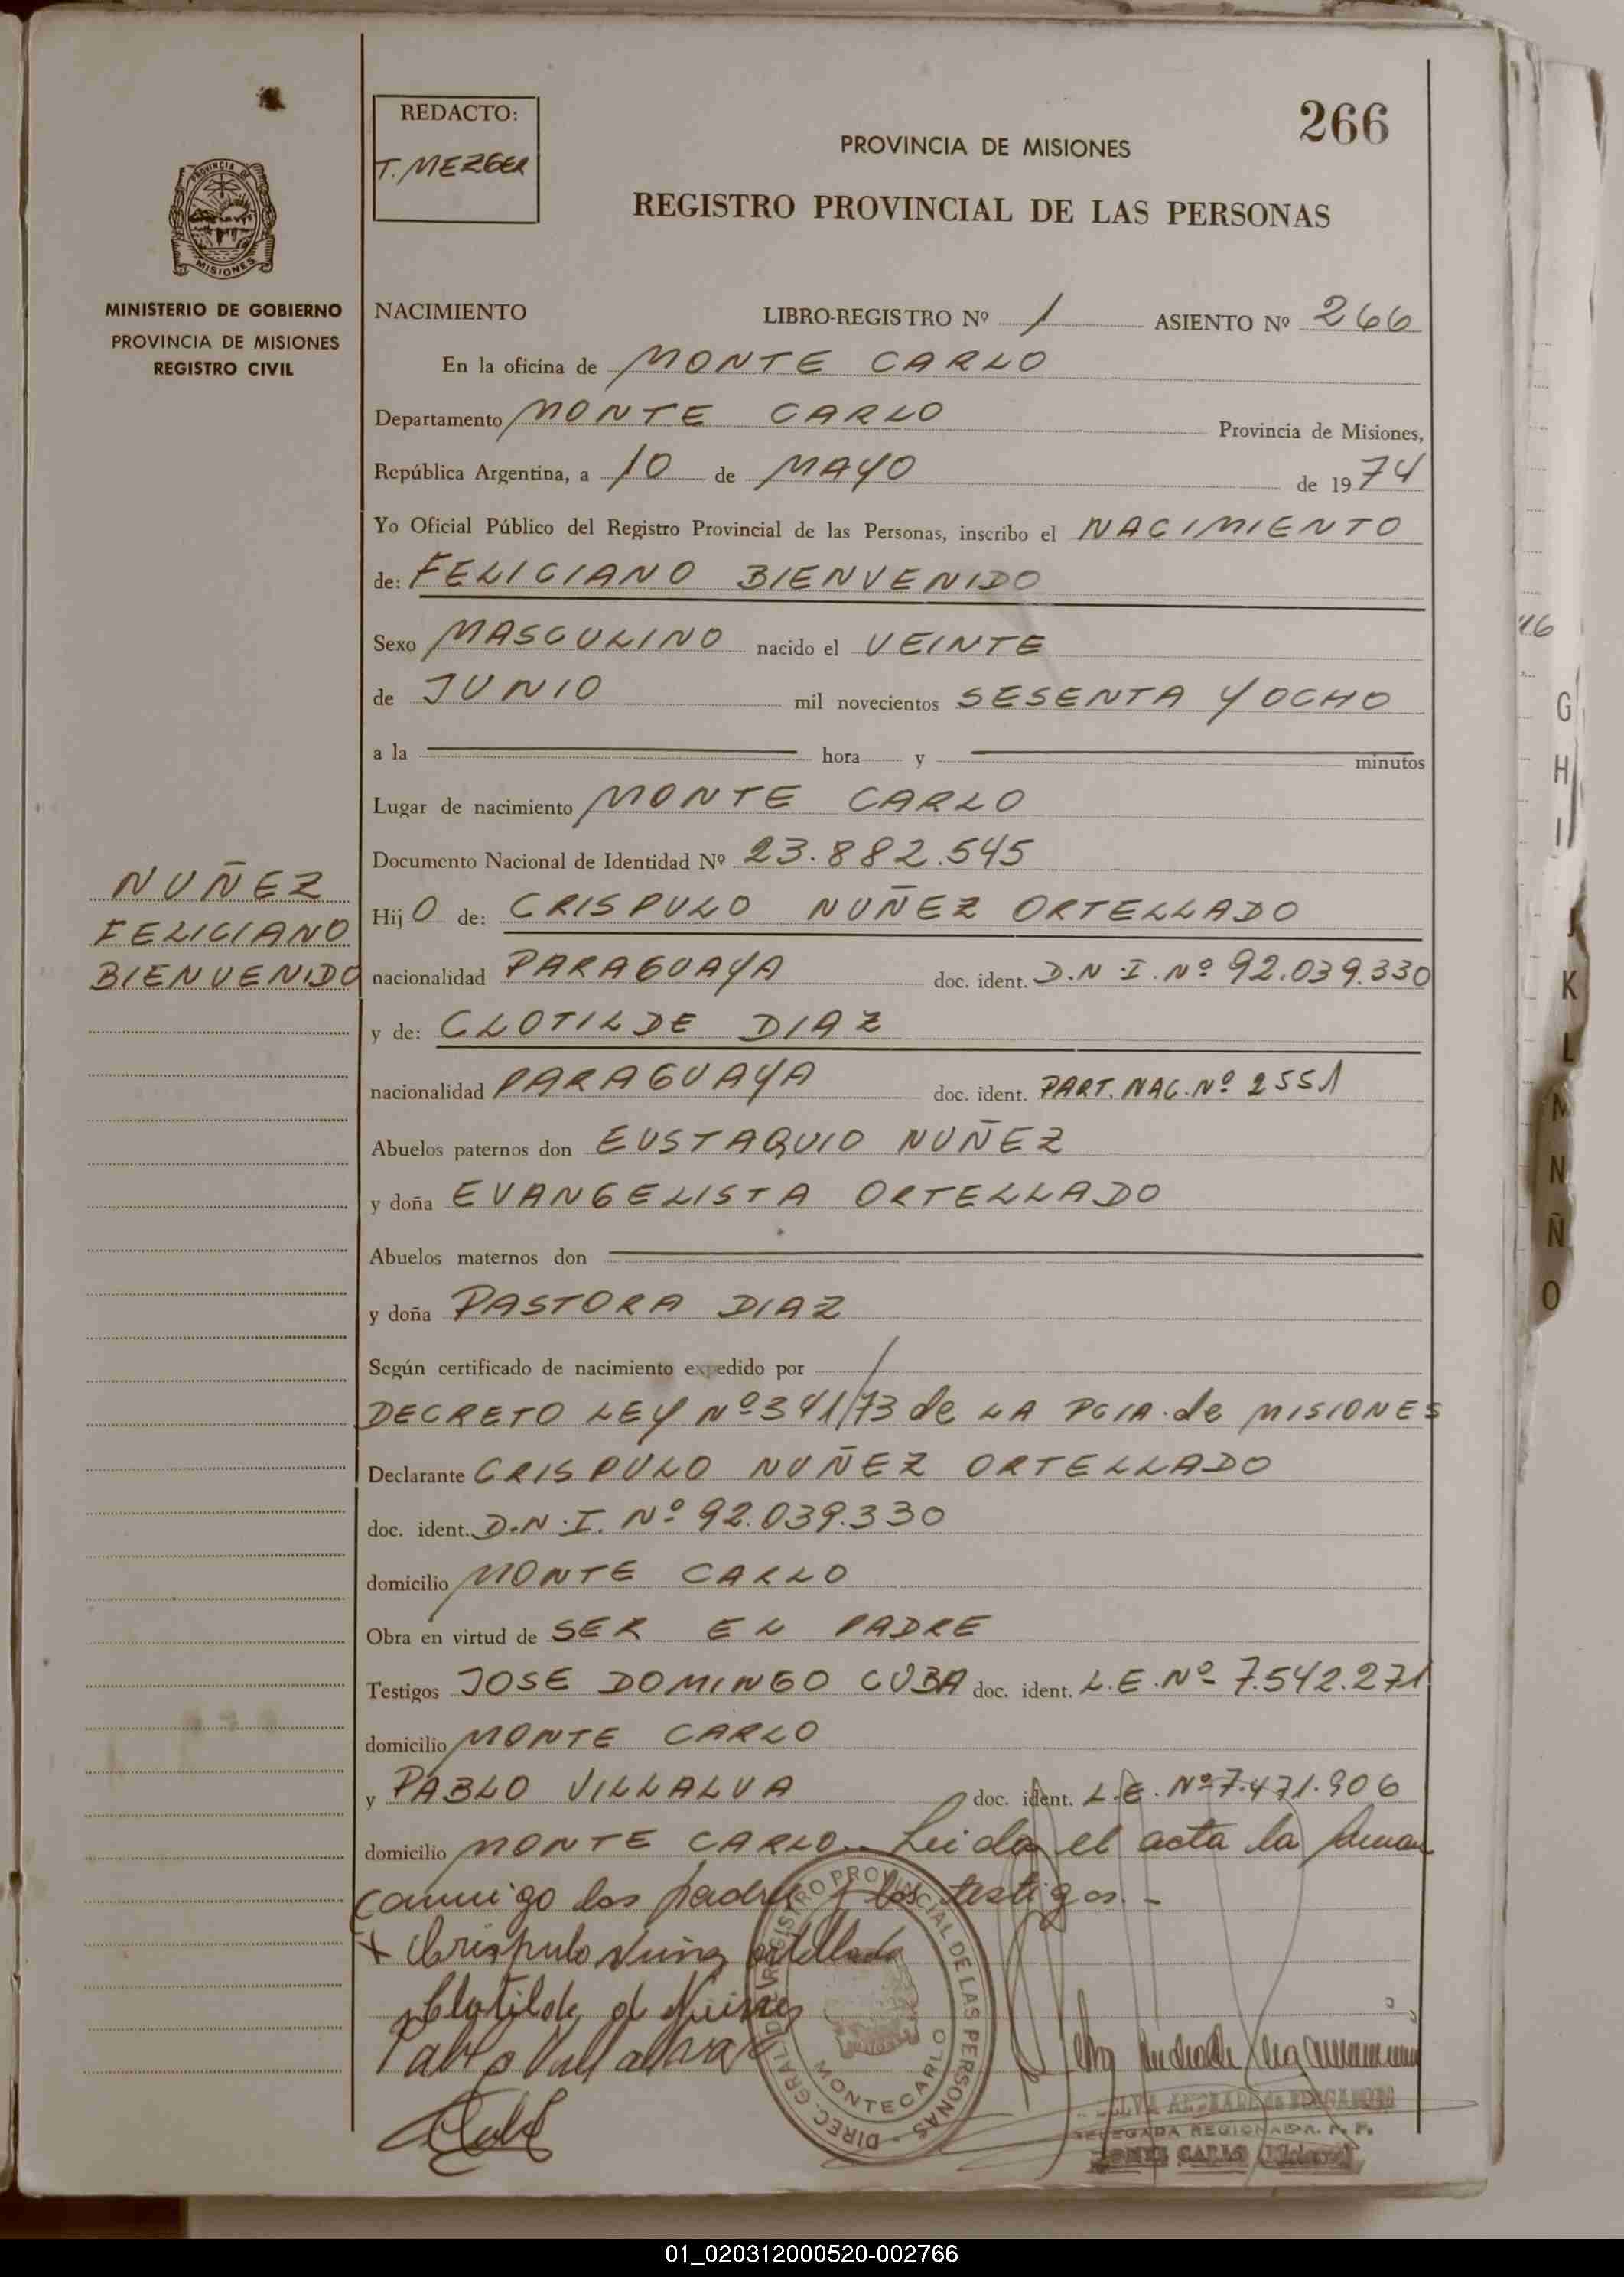 REDACTO:
T. MEZGER
266
PROVINCIA DE MISIONES
REGISTRO PROVINCIAL DE LAS PERSONAS
PROVINCIA DE
MISIONES
MINISTERIO DE GOBIERNO
PROVINCIA DE MISIONES
REGISTRO CIVIL
NACIMIENTO LIBRO-REGISTRO Nº 1 ASIENTO Nº 266
En la oficina de MONTE CARLO
Departamento MONTE CARLO Provincia de Misiones,
República Argentina, a 10 de MAYO de 1974
Yo Oficial Público del Registro Provincial de las Personas, inscribo el NACIMIENTO
de: FELICIANO BIENVENIDO
Sexo MASCULINO nacido el VEINTE
de JUNIO mil novecientos SESENTA Y OCHO
a la hora y minutos
Lugar de nacimiento MONTE CARLO
Documento Nacional de Identidad Nº 23.882.545
NUÑEZ
FELICIANO
BIENVENIDO
Hij O de: CRISPULO NUÑEZ ORTELLADO
nacionalidad PARAGUAYA doc. ident. D.N.I. Nº 92.039.330
y de: CLOTILDE DIAZ
nacionalidad PARAGUAYA doc. ident. PART. NAC. Nº 2551
Abuelos paternos don EUSTAQUIO NUÑEZ
y doña EVANGELISTA ORTELLADO
Abuelos maternos don
y doña PASTORA DIAZ
Según certificado de nacimiento expedido por /
DECRETO LEY Nº 341/73 de LA PCIA. de MISIONES
Declarante CRISPULO NUÑEZ ORTELLADO
doc. ident. D.N.I. Nº 92.039.330
domicilio MONTE CARLO
Obra en virtud de SER EL PADRE
Testigos JOSE DOMINGO CUBA doc. ident. L.E. Nº 7.542.271
domicilio MONTE CARLO
y PABLO VILLALVA doc. ident. L.E. Nº 7.471.906
domicilio MONTE CARLO.- Leida el acta la firman
conmigo los padres y los testigos.-
x Crispulo Nuñez ortellado
Clotilde d Nuñez
Pablo Villalva
DIREC. GRAL. DEL REGISTRO PROVINCIAL DE LAS PERSONAS
MONTECARLO
DELEGADA REGIONAL
MONTE CARLO
16
G
H
I
J
K
L
M
N
Ñ
O
01_020312000520-002766